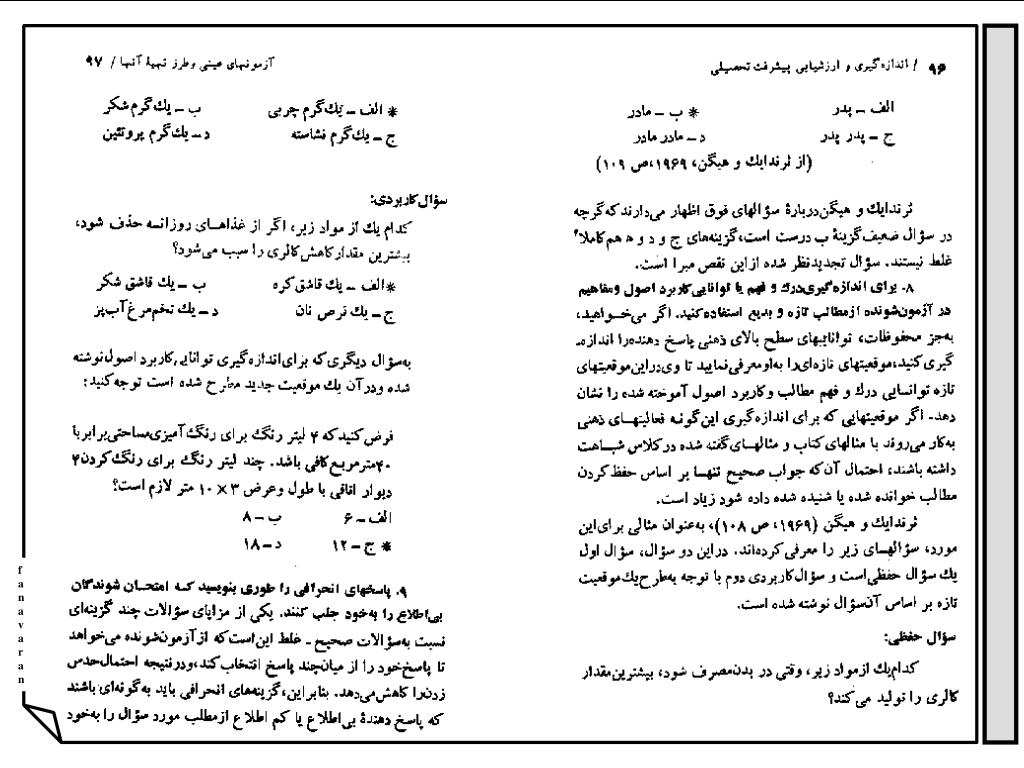 ۹۶ / اندازه‌گیری و ارزشیابی پیشرفت تحصیلی
الف ــ پدر
* ب ــ مادر
ج ــ پدر پدر
د ــ مادر مادر
(از ثرندایك و هیگن، ۱۹۶۹، ص ۱۰۹)
ثرندایك و هیگن دربارهٔ سؤالهای فوق اظهار می‌دارند که گرچه
در سؤال ضعیف گزینهٔ ب درست است، گزینه‌های ج و د و ه هم کاملاً
غلط نیستند. سؤال تجدیدنظر شده از این نقص مبرا است.
۸- برای اندازه‌گیری درك و فهم یا توانایی کاربرد اصول و مفاهیم
در آزمون‌شونده از مطالب تازه و بدیع استفاده کنید. اگر می‌خواهید،
به‌جز محفوظات، تواناییهای سطح بالای ذهنی پاسخ دهنده را اندازه‌ـ
گیری کنید، موقعیتهای تازه‌ای را به او معرفی نمایید تا وی در این موقعیتهای
تازه توانسایی درك و فهم مطالب و کاربرد اصول آموخته شده را نشان
دهد. اگر موقعیتهایی که برای اندازه‌گیری این‌گونه فعالیتهای ذهنی
به‌کار می‌روند با مثالهای کتاب و مثالهای گفته شده در کلاس شباهت
داشته باشند، احتمال آن‌که جواب صحیح تنها بر اساس حفظ کردن
مطالب خوانده شده یا شنیده شده داده شود زیاد است.
ثرندایك و هیگن (۱۹۶۹، ص ۱۰۸)، به‌عنوان مثالی برای این
مورد، سؤالهای زیر را معرفی کرده‌اند. در این دو سؤال، سؤال اول
یك سؤال حفظی است و سؤال کاربردی دوم با توجه به طرح یك موقعیت
تازه بر اساس آن سؤال نوشته شده است.
سؤال حفظی:
کدام یك از مواد زیر، وقتی در بدن مصرف شود، بیشترین مقدار
کالری را تولید می‌کند؟
آزمونهای عینی و طرز تهیهٔ آنها / ۹۷
* الف ــ یك گرم چربی
ب ــ یك گرم شکر
ج ــ یك گرم نشاسته
د ــ یك گرم پروتئین
سؤال کاربردی:
کدام یك از مواد زیر، اگر از غذاهای روزانه حذف شود،
بیشترین مقدار کاهش کالری را سبب می‌شود؟
* الف ــ یك قاشق کره
ب ــ یك قاشق شکر
ج ــ یك قرص نان
د ــ یك تخم‌مرغ آب‌پز
به سؤال دیگری که برای اندازه‌گیری توانایی کاربرد اصول نوشته
شده و در آن یك موقعیت جدید مطرح شده است توجه کنید:
فرض کنید که ۴ لیتر رنگ برای رنگ‌آمیزی مساحتی برابر با
۴۰ متر مربع کافی باشد. چند لیتر رنگ برای رنگ کردن ۴
دیوار اتاقی با طول و عرض ۳ × ۱۰ متر لازم است؟
الف ــ ۶
ب ــ ۸
* ج ــ ۱۲
د ــ ۱۸
۹. پاسخهای انحرافی را طوری بنویسید که امتحان شوندگان
بی‌اطلاع را به‌خود جلب کنند. یکی از مزایای سؤالات چند گزینه‌ای
نسبت به سؤالات صحیح ــ غلط این است که از آزمون‌شونده می‌خواهد
تا پاسخ خود را از میان چند پاسخ انتخاب کند، و در نتیجه احتمال حدس
زدن را کاهش می‌دهد. بنابراین، گزینه‌های انحرافی باید به‌گونه‌ای باشند
که پاسخ دهندهٔ بی‌اطلاع یا کم اطلاع از مطلب مورد سؤال را به‌خود
fanavaran